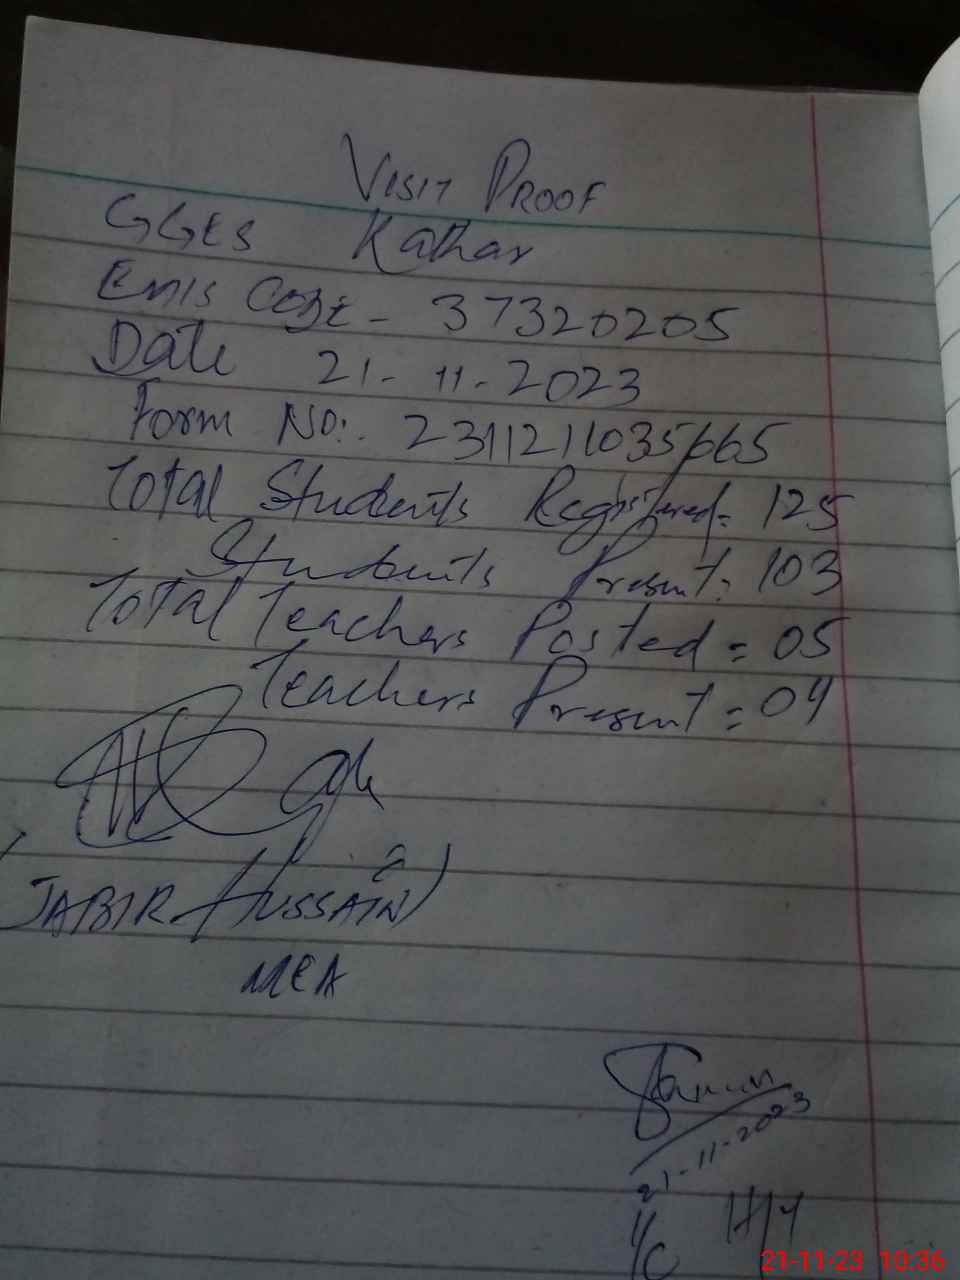 VISIT PROOF
GGES Kathar
EMIS Code - 37320205
Date 21-11-2023
Form No:. 2311211035665
Total Students Registered = 125
Students Present: 103
Total Teachers Posted = 05
Teachers Present = 04
(JABIR HUSSAIN)
MEA
21-11-2023
I/C H/M
21-11-23 10:36